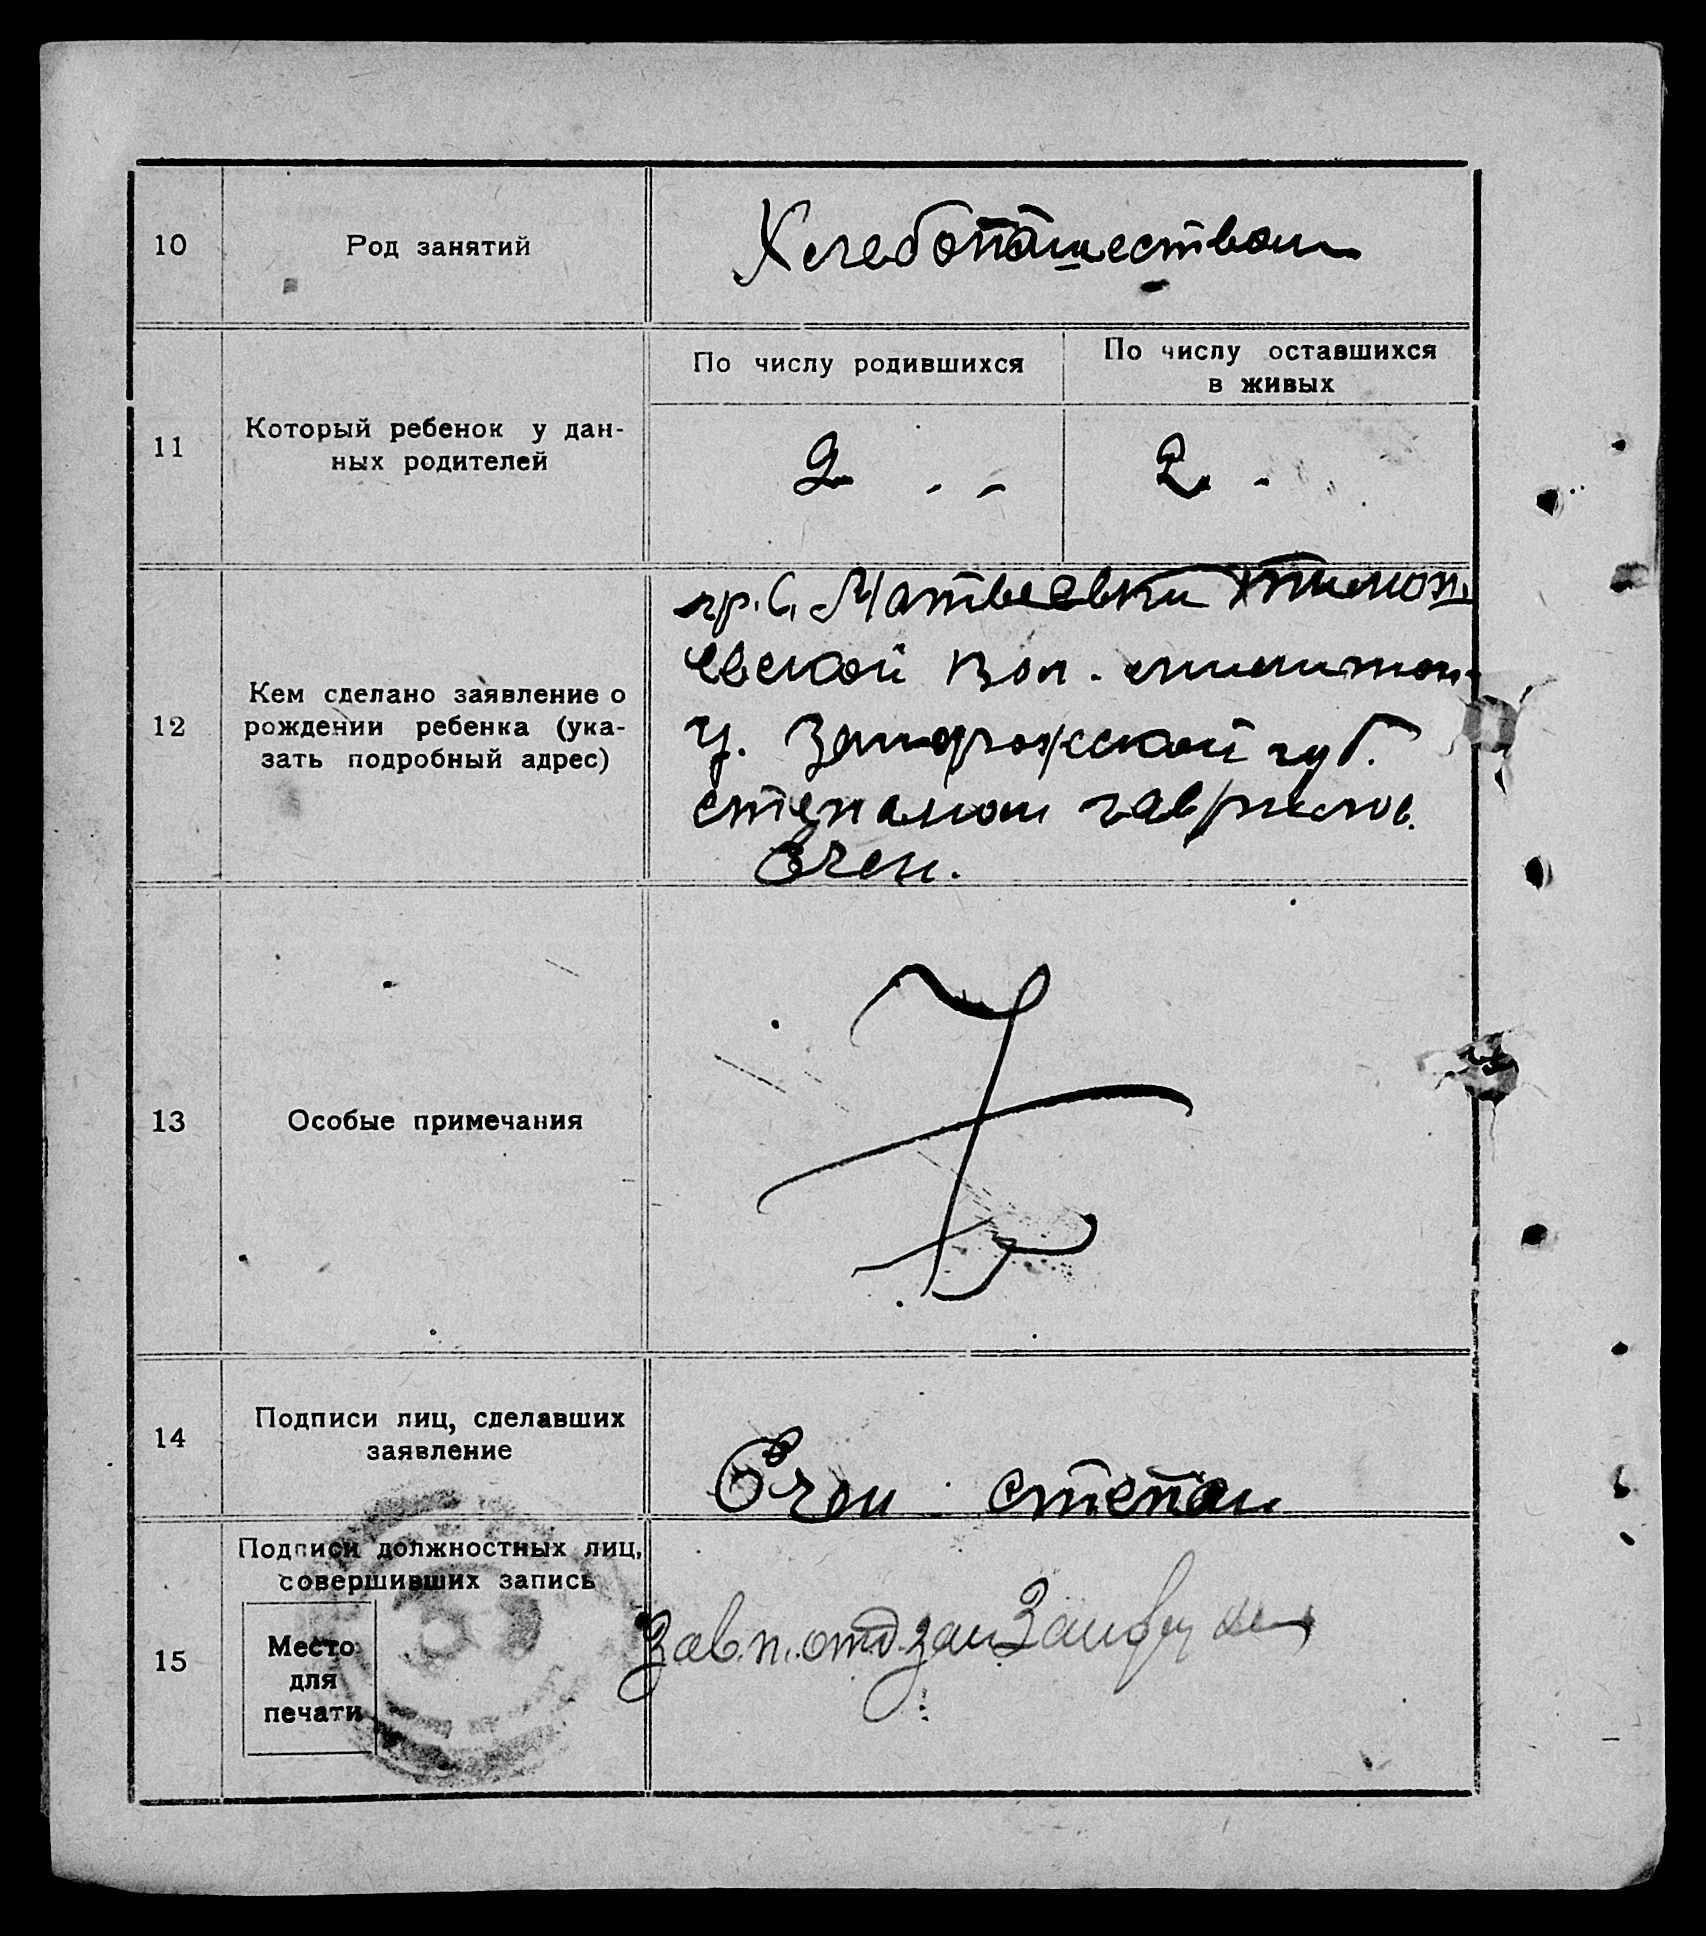 10
Род занятий
Хлебопашеством
11
Который ребенок у дан-
ных родителей
По числу родившихся
По числу оставшихся
в живых
2
2
12
Кем сделано заявление о
рождении ребенка (ука-
зать подробный адрес)
гр. С. Матвеевки
евской вол.
у. Запорожской губ.
степаном гаврилов.
13
Особые примечания
14
Подписи лиц, сделавших
заявление
степан
15
Подписи должностных лиц,
совершивших запись
Место
для
печати
Зав. п. отд. зап